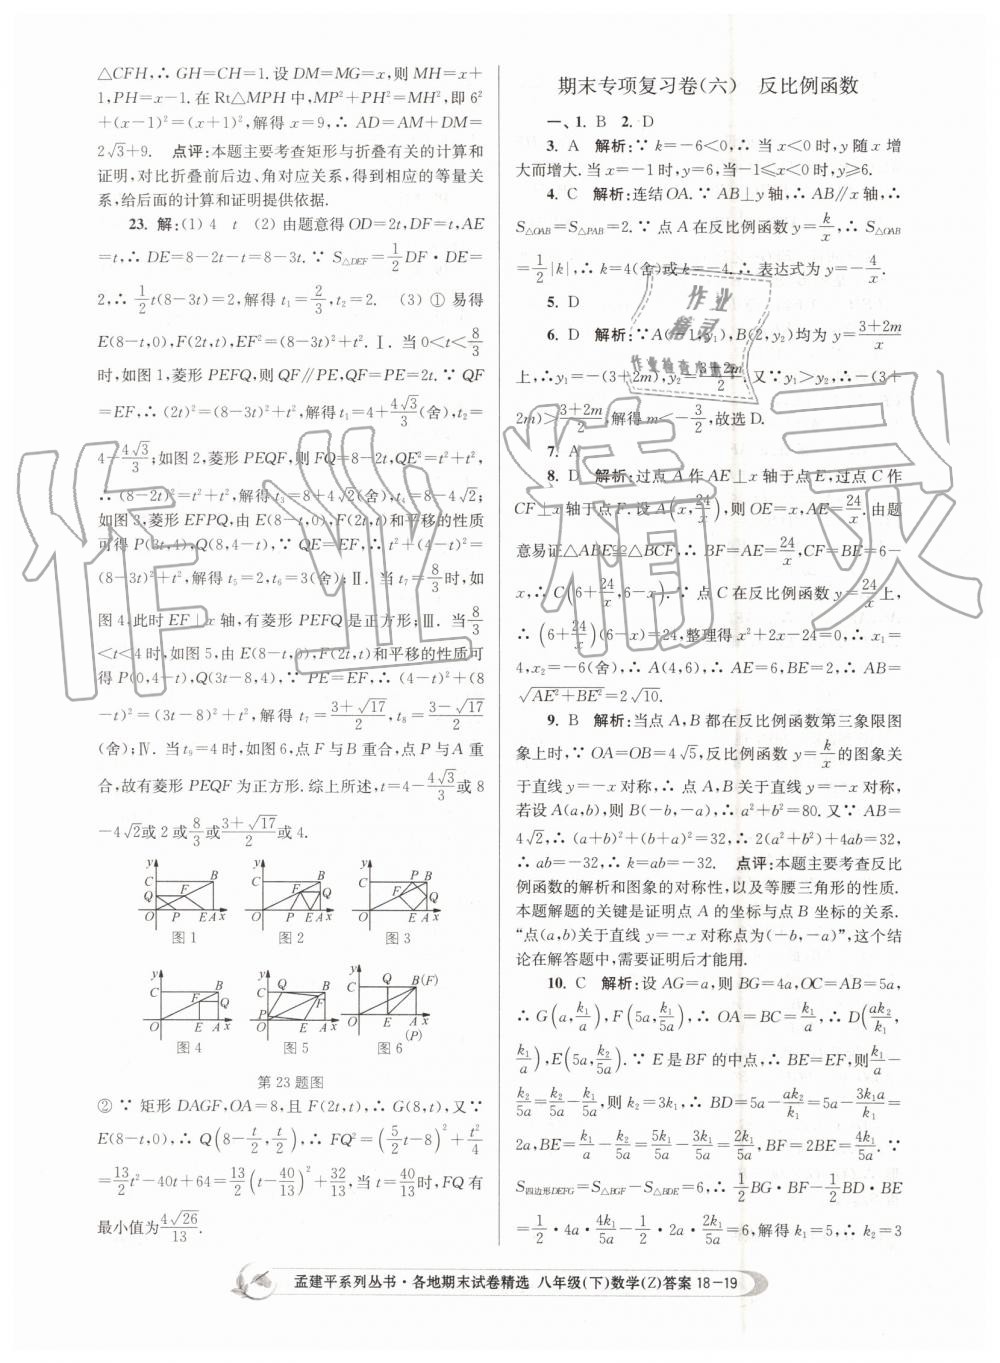 △CFH,∴ GH=CH=1.设 DM=MG=x,则 MH=x+
1,PH=x-1.在 Rt△MPH 中,MP²+PH²=MH²,即 6²
+(x-1)²=(x+1)²,解得 x=9,∴ AD=AM+DM=
2√3+9. 点评:本题主要考查矩形与折叠有关的计算和
证明,对比折叠前后边、角对应关系,得到相应的等量关
系,给后面的计算和证明提供依据.
23. 解:(1) 4 t (2) 由题意得 OD=2t,DF=t,AE
=t,∴ DE=8-2t-t=8-3t.∵ S△DEF=1/2 DF·DE=
2,∴ 1/2 t(8-3t)=2,解得 t₁=2/3,t₂=2. (3) ① 易得
E(8-t,0),F(2t,t),EF²=(8-3t)²+t².Ⅰ. 当 0<t<8/3
时,如图 1,菱形 PEFQ,则 QF∥PE,QF=PE=2t.∵ QF
=EF,∴ (2t)²=(8-3t)²+t²,解得 t₁=4+4√3/3(舍),t₂=
4-4√3/3;如图 2,菱形 PEQF,则 FQ=8-2t,QE²=t²+t²,
∴ (8-2t)²=t²+t²,解得 t₃=8+4√2(舍),t₄=8-4√2;
如图 3,菱形 EFPQ,由 E(8-t,0),F(2t,t)和平移的性质
可得 P(3t,4),Q(8,4-t),∵ QE=EF,∴ t²+(4-t)²=
(8-3t)²+t²,解得 t₅=2,t₆=3(舍);Ⅱ. 当 t₇=8/3时,如
图 4,此时 EF⊥x 轴,有菱形 PEFQ 是正方形;Ⅲ. 当 8/3
<t<4 时,如图 5,由 E(8-t,0),F(2t,t)和平移的性质可
得 P(0,4-t),Q(3t-8,4),∵ PE=EF,∴ (4-t)²+(8
-t)²=(3t-8)²+t²,解得 t₇=(3+√17)/2,t₈=(3-√17)/2
(舍);Ⅳ. 当 t₉=4 时,如图 6,点 F 与 B 重合,点 P 与 A 重
合,故有菱形 PEQF 为正方形.综上所述,t=4-4√3/3或 8
-4√2或 2 或 8/3或(3+√17)/2或 4.
y C B Q F O P E A x
图 1
y C B F Q O P E A x
图 2
y C P B F Q O E A x
图 3
y C B F Q O E A x
图 4
y C Q B F P O E A x
图 5
y C B(F) O E A x (P)
图 6
第 23 题图
② ∵ 矩形 DAGF,OA=8,且 F(2t,t),∴ G(8,t),又∵
E(8-t,0),∴ Q(8-t/2,t/2),∴ FQ²=(5/2 t-8)²+t²/4
=13/2 t²-40t+64=13/2(t-40/13)²+32/13,当 t=40/13时,FQ 有
最小值为4√26/13.
期末专项复习卷(六) 反比例函数
一、1. B 2. D
3. A 解析:∵ k=-6<0,∴ 当 x<0 时,y 随 x 增
大而增大.当 x=-1 时,y=6,当-1≤x<0 时,y≥6.
4. C 解析:连结 OA.∵ AB⊥y 轴,∴ AB∥x 轴,∴
S△OAB=S△PAB=2.∵ 点 A 在反比例函数 y=k/x上,∴ S△OAB
=1/2|k|,∴ k=4(舍)或 k=-4.∴ 表达式为 y=-4/x.
5. D
6. D 解析:∵A(-1,y₁),B(2,y₂)均为 y=(3+2m)/x
上,∴y₁=-(3+2m),y₂=(3+2m)/2.又∵y₁>y₂,∴-(3+
2m)>(3+2m)/2,解得 m<-3/2,故选 D.
7. A
8. D 解析:过点 A 作 AE⊥x 轴于点 E,过点 C 作
CF⊥x 轴于点 F.设 A(x,24/x),则 OE=x,AE=24/x.由题
意易证△ABE≌△BCF,∴ BF=AE=24/x,CF=BE=6-
x,∴ C(6+24/x,6-x).∵ 点 C 在反比例函数 y=24/x上,
∴ (6+24/x)(6-x)=24,整理得 x²+2x-24=0,∴ x₁=
4,x₂=-6(舍),∴ A(4,6),∴ AE=6,BE=2,∴ AB=
√(AE²+BE²)=2√10.
9. B 解析:当点 A,B 都在反比例函数第三象限图
象上时,∵ OA=OB=4√5,反比例函数 y=k/x的图象关
于直线 y=-x 对称,∴ 点 A,B 关于直线 y=-x 对称,
若设 A(a,b),则 B(-b,-a),∴ a²+b²=80.又∵ AB=
4√2,∴ (a+b)²+(b+a)²=32,∴ 2(a²+b²)+4ab=32,
∴ ab=-32,∴ k=ab=-32. 点评:本题主要考查反比
例函数的解析和图象的对称性,以及等腰三角形的性质.
本题解题的关键是证明点 A 的坐标与点 B 坐标的关系.
“点(a,b)关于直线 y=-x 对称点为(-b,-a)”,这个结
论在解答题中,需要证明后才能用.
10. C 解析:设 AG=a,则 BG=4a,OC=AB=5a,
∴ G(a,k₁/a),F(5a,k₁/5a),∴ OA=BC=k₁/a,∴ D(ak₂/k₁,
k₁/a),E(5a,k₂/5a).∵ E 是 BF 的中点,∴ BE=EF,则k₁/a-
k₂/5a=k₂/5a-k₁/5a,则 k₂=3k₁,∴ BD=5a-ak₂/k₁=5a-3k₁a/k₁=
2a,BE=k₁/a-k₂/5a=5k₁/5a-3k₁/5a=2k₁/5a,BF=2BE=4k₁/5a. ∵
S四边形DEFG=S△BGF-S△BDE=6,∴ 1/2 BG·BF-1/2 BD·BE
=1/2·4a·4k₁/5a-1/2·2a·2k₁/5a=6,解得 k₁=5,∴ k₂=3
作业精灵
作业
精灵
作业检查小助手
孟建平系列丛书·各地期末试卷精选 八年级(下)数学(Z)答案 18-19